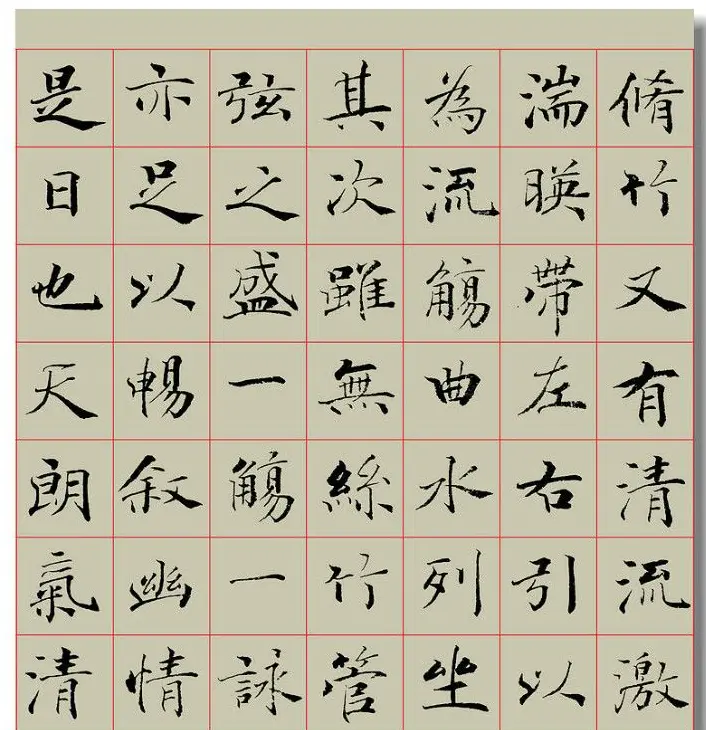 脩竹又有清流激
湍暎帶左右引以
為流觴曲水列坐
其次雖無絲竹管
弦之盛一觴一詠
亦足以暢叙幽情
是日也天朗氣清